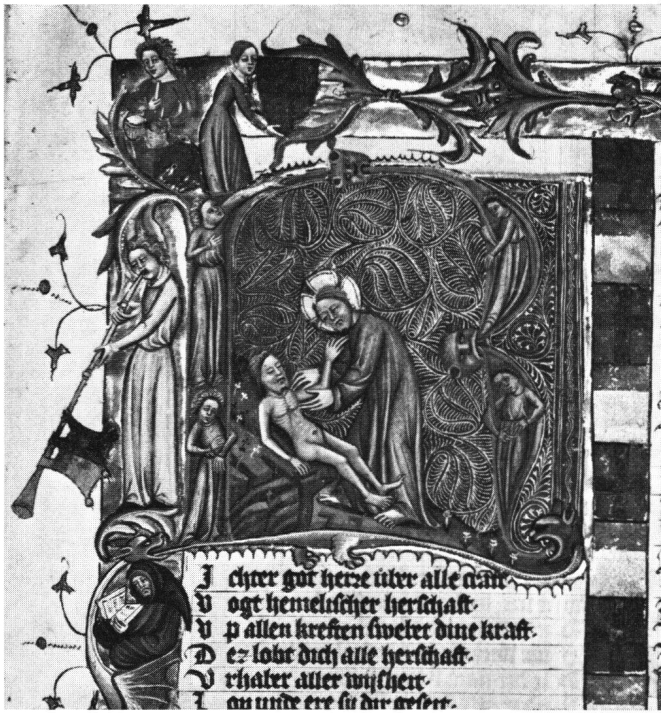 I chter got herre über alle craft·
V ogt hemelischer herschaft·
V p allen kreften swebet dine kraft·
D ez lobt dich alle herschaft·
V rhaber aller wysheit·
L op unde ere sy dir geseit·